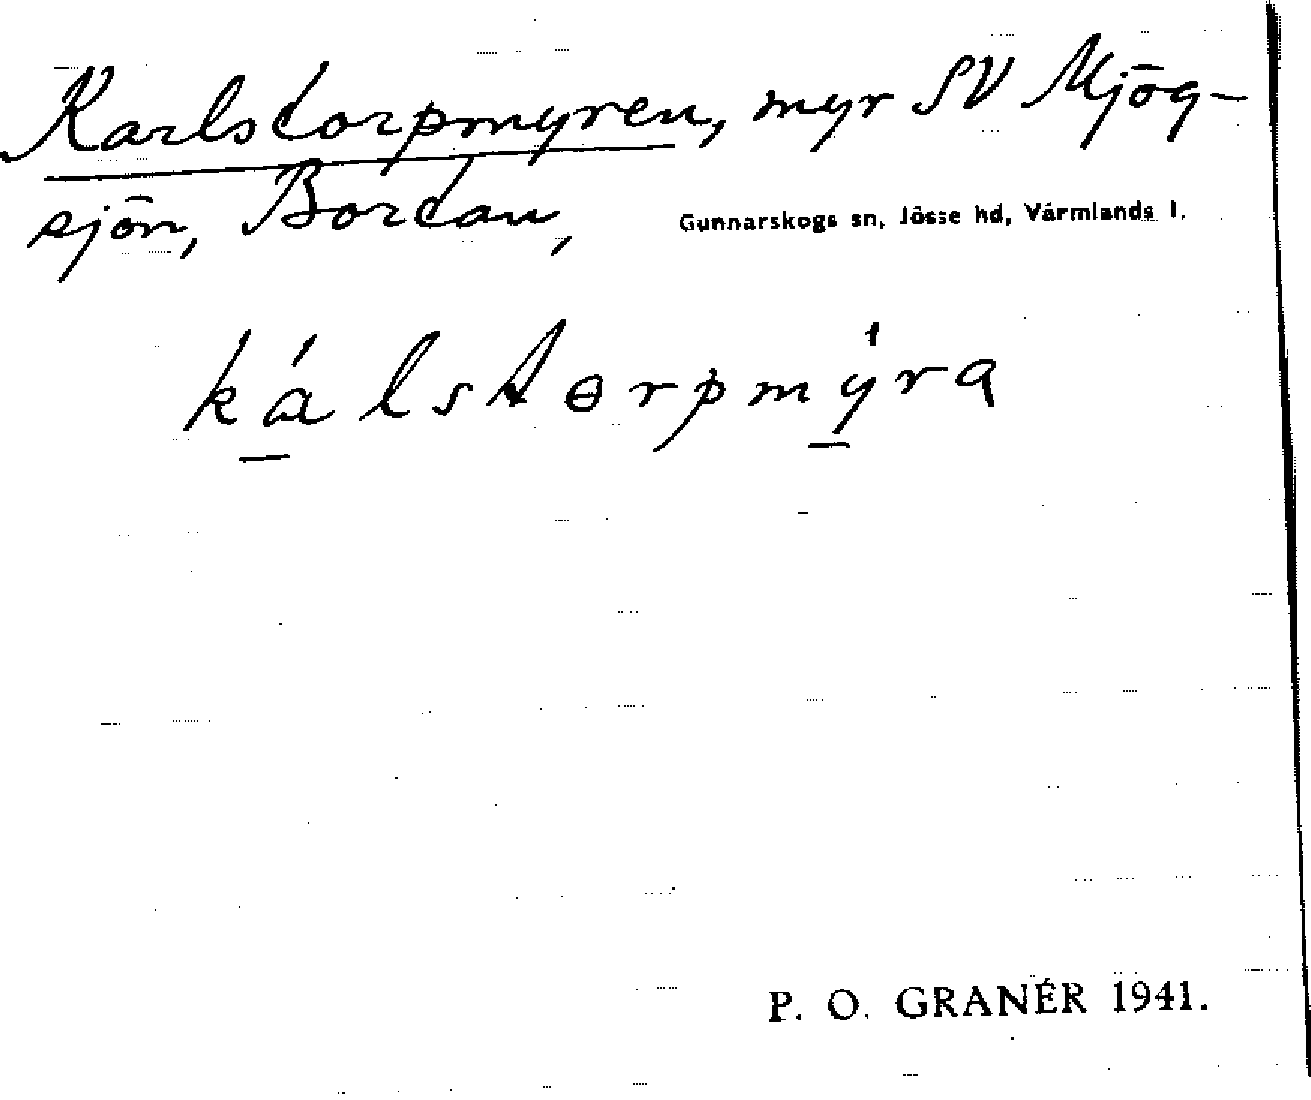 Karlstorpmyren, myr SV Mjög-
sjön, Bortan,
Gunnarskogs sn, Jösse hd, Värmlands l.
kálstɵrpmýra
P. O. GRANÉR 1941.